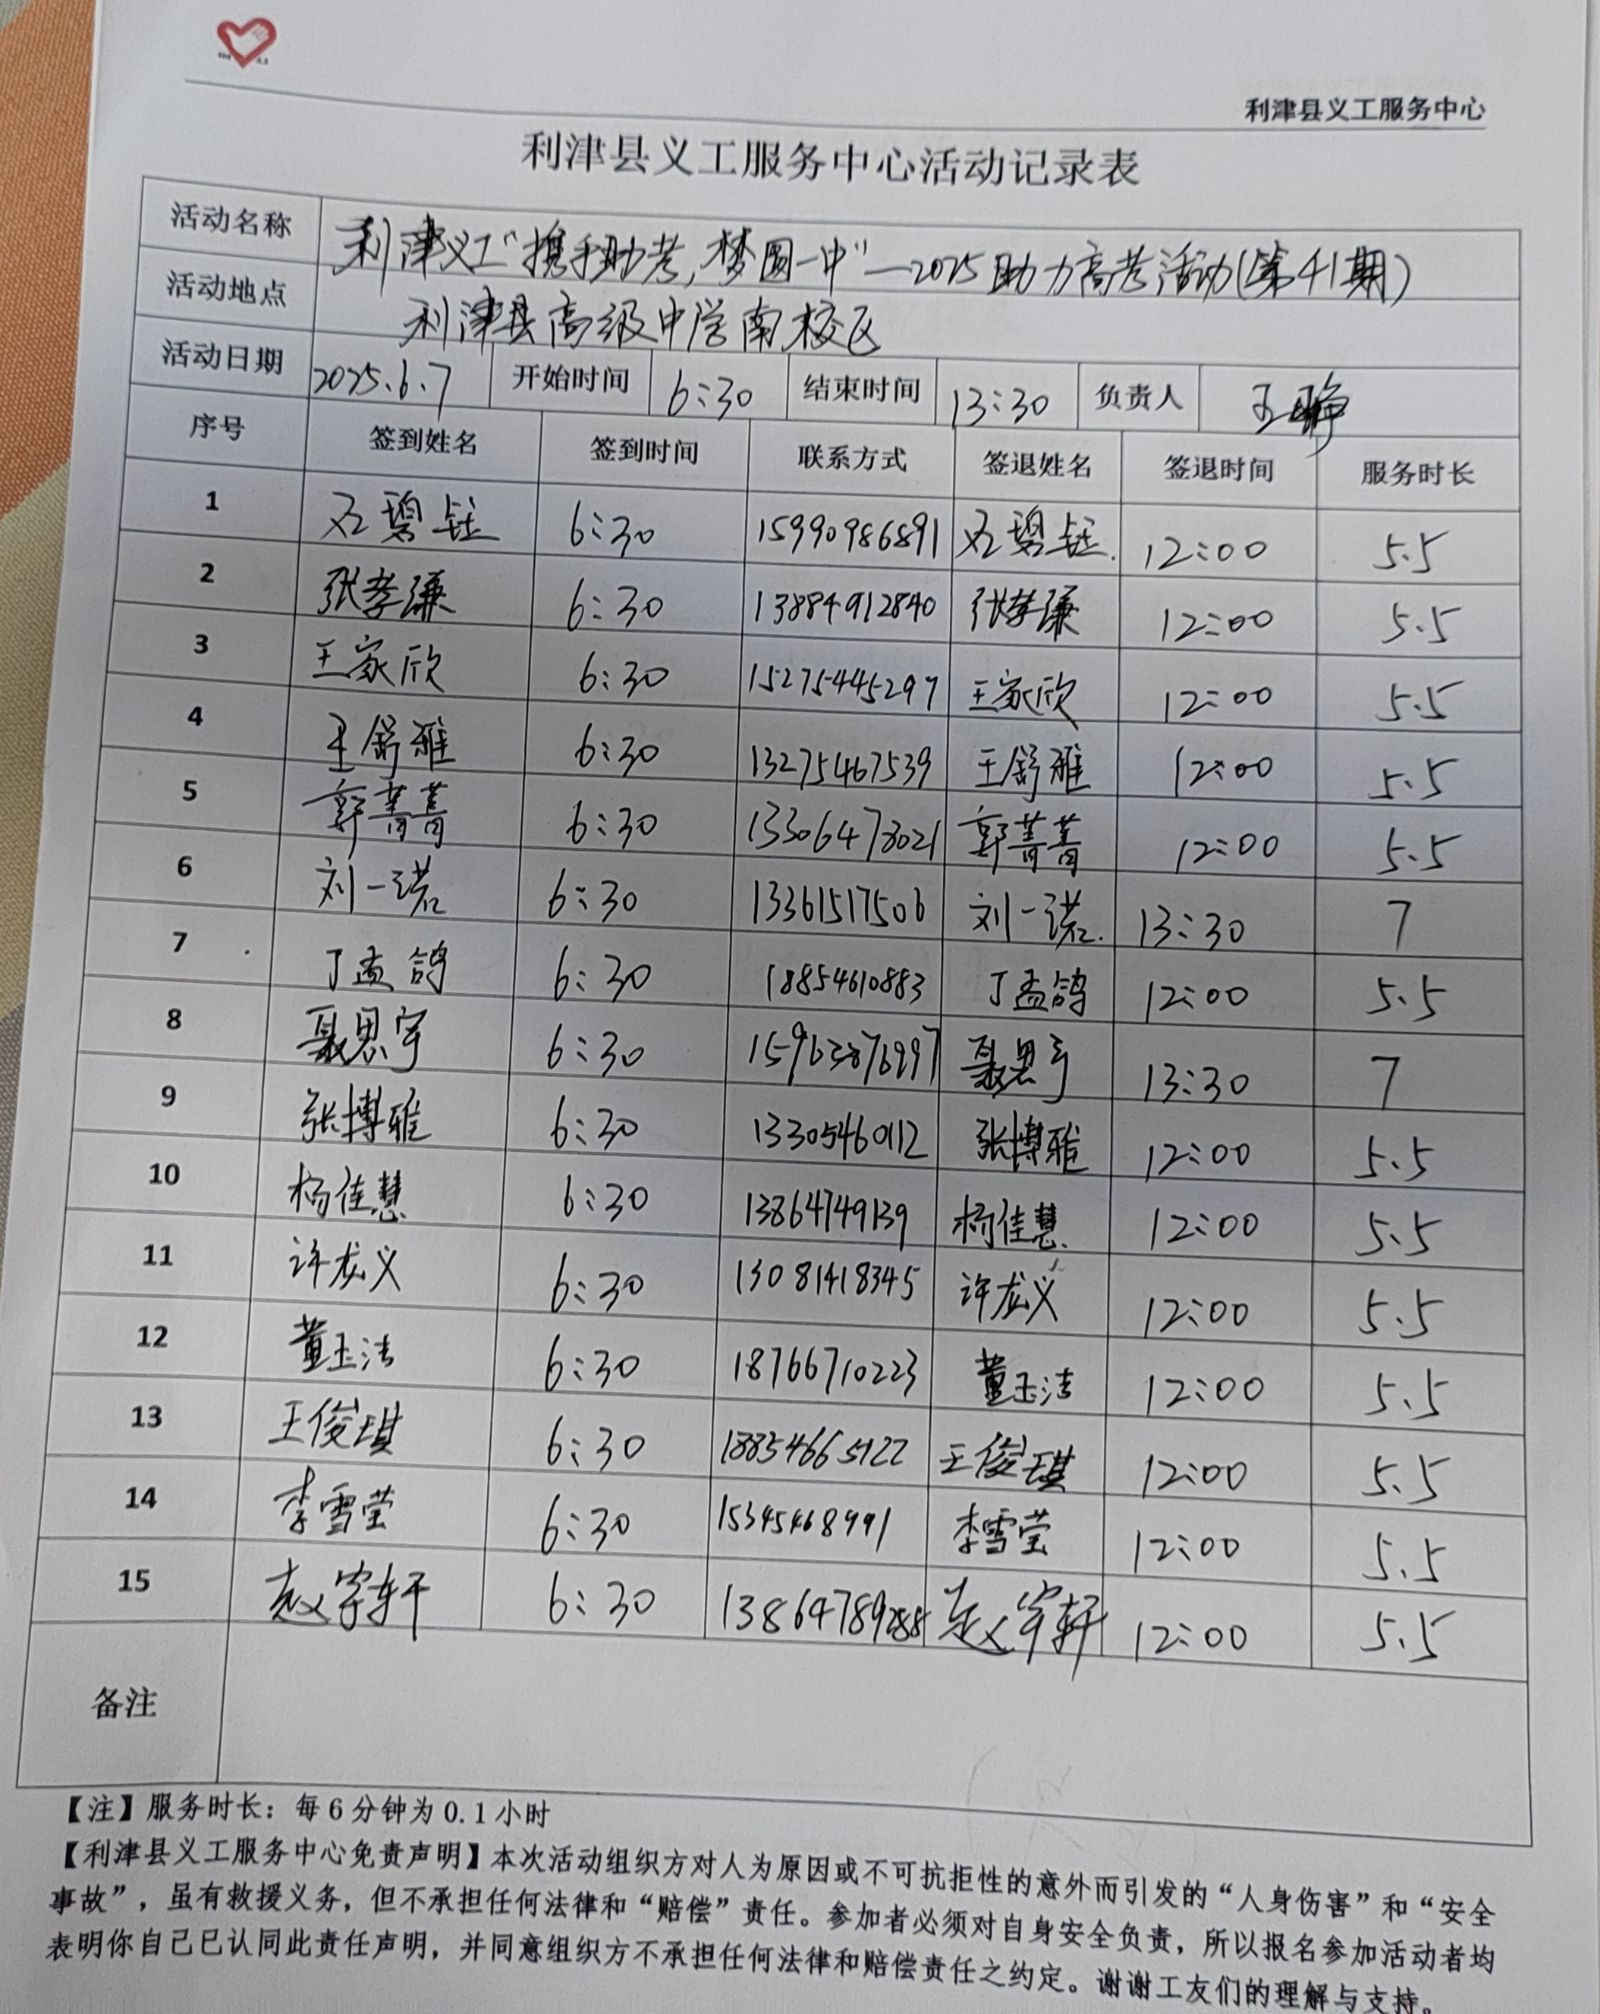 利津县义工服务中心
利津县义工服务中心活动记录表
活动名称 利津义工“携手助考,梦圆一中”—2025助力高考活动(第41期)
活动地点 利津县高级中学南校区
活动日期 2025.6.7 开始时间 6:30 结束时间 13:30 负责人 王
序号 签到姓名 签到时间 联系方式 签退姓名 签退时间 服务时长
1 石碧钰 6:30 15990986891 石碧钰. 12:00 5.5
2 张孝谦 6:30 13884912840 张孝谦 12:00 5.5
3 王家欣 6:30 15275445297 王家欣 12:00 5.5
4 王舒雅 6:30 13275467539 王舒雅 12:00 5.5
5 郭菁菁 6:30 13306478021 郭菁菁 12:00 5.5
6 刘一诺 6:30 13361517506 刘一诺. 13:30 7
7 丁孟鸽 6:30 18854610883 丁孟鸽 12:00 5.5
8 聂思宇 6:30 聂思宇 13:30 7
9 张博雅 6:30 13305460112 张博雅 12:00 5.5
10 杨佳慧 6:30 13864749139 杨佳慧 12:00 5.5
11 许龙义 6:30 13081418345 许龙义 12:00 5.5
12 董玉洁 6:30 18766710223 董玉洁 12:00 5.5
13 王俊琪 6:30 18854665122 王俊琪 12:00 5.5
14 李雪莹 6:30 15345468991 李雪莹 12:00 5.5
15 赵字轩 6:30 赵字轩 12:00 5.5
备注
【注】服务时长：每6分钟为0.1小时
【利津县义工服务中心免责声明】本次活动组织方对人为原因或不可抗拒性的意外而引发的“人身伤害”和“安全
事故”，虽有救援义务，但不承担任何法律和“赔偿”责任。参加者必须对自身安全负责，所以报名参加活动者均
表明你自己已认同此责任声明，并同意组织方不承担任何法律和赔偿责任之约定。谢谢工友们的理解与支持。